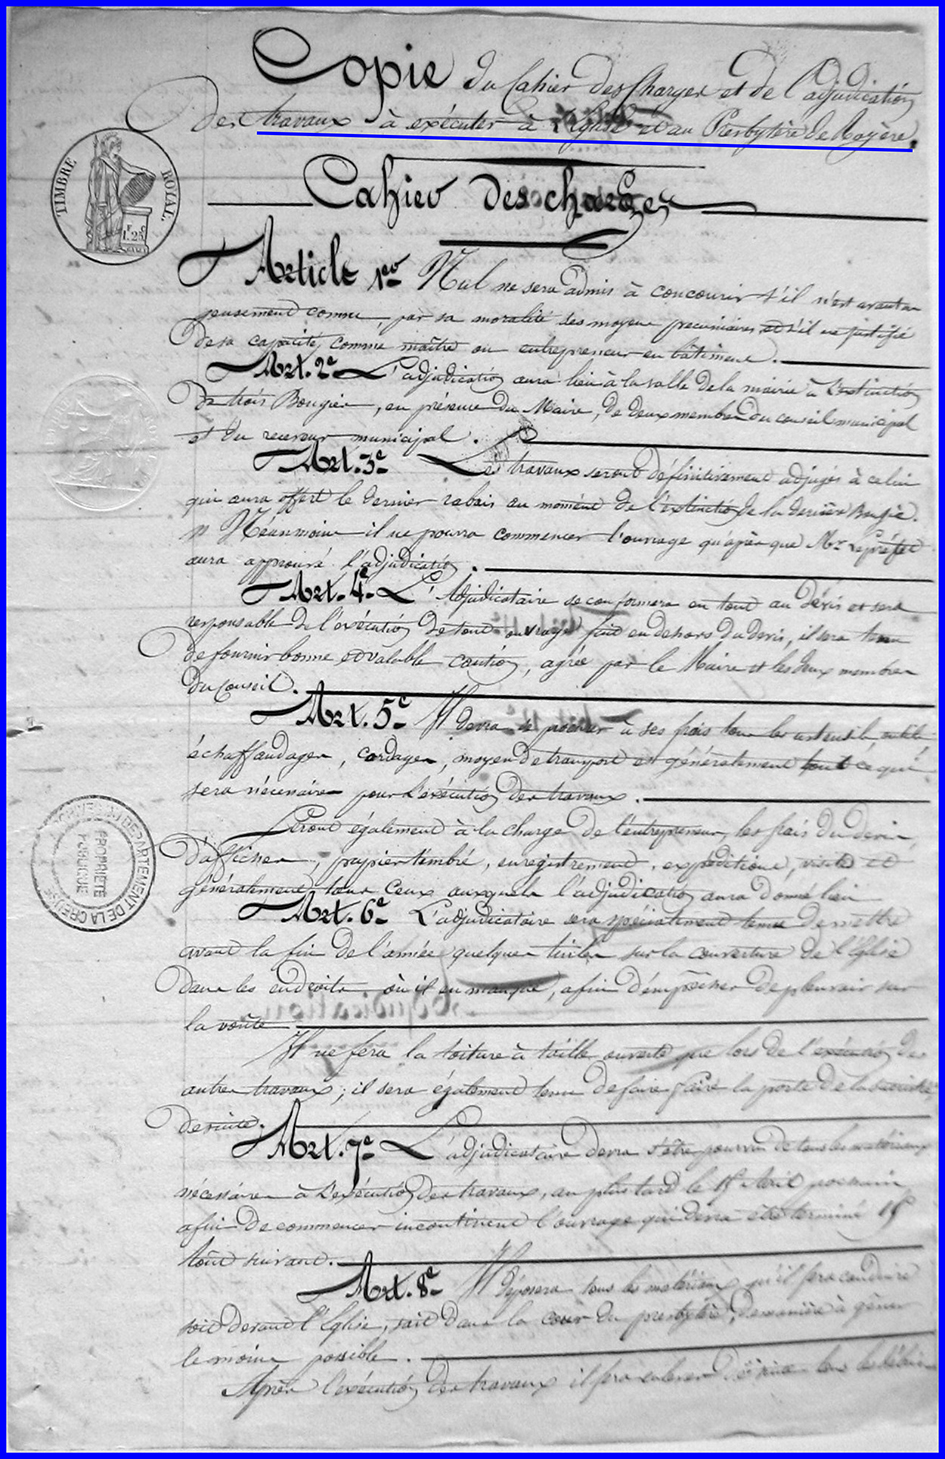 Copie du Cahier des Charges et de l'adjudication
des travaux à exécuter à l'Eglise et au Presbytère de Royère.
TIMBRE ROYAL.
1.25
Cahier des charges
Article 1er Nul ne sera admis à concourir s'il n'est avanta
geusement connu, par sa moralité ses moyens pécuniaires et s'il ne justifie
de sa capacité, comme maître ou entrepreneur en bâtiment.
Art. 2e L'adjudication aura lieu à la salle de la mairie à l'extinction
de trois Bougies, en présence du Maire, de deux membres du conseil municipal
et du receveur municipal.
Art. 3e Les travaux seront définitivement adjugés à celui
qui aura offert le dernier rabais au moment de l'extinction de la dernière Bougie.
Néanmoins il ne pourra commencer l'ouvrage qu'après que Mr le préfet
aura approuvé l'adjudication.
Art. 4e L'Adjudicataire se conformera en tout au devis et sera
responsable de l'exécution de tout ouvrage fait en dehors du devis, il sera tenu
de fournir bonne et valable caution, agréée par le Maire et les deux membres
du Conseil.
Art. 5e Il devra se procurer à ses frais tous les ustensils, utils
échaffaudages, cordages, moyens de transport et généralement tout ce qui
sera nécessaire pour l'exécution des travaux.
Seront également à la charge de l'entrepreneur, les frais du devis,
d'affiches, papier timbré, enregistrement, expéditions, visites et
généralement tous ceux auxquels l'adjudication aura donné lieu
ARCHIVES DU DEPARTEMENT DE LA CREUSE
PROPRIÉTÉ PUBLIQUE
Art. 6e L'adjudicataire sera spécialement tenu de mettre
avant la fin de l'année quelques tuiles sur la couverture de l'Eglise
dans les endroits où il en manque, afin d'empêcher de pleuvoir sur
la voûte.
Il ne fera la toiture à taille ouverte que lors de l'exécution des
autres travaux; il sera également tenu de faire faire la porte de la sacristie
de suite.
Art. 7e L'adjudicataire devra s'être pourvu de tous les matériaux
nécessaires à l'exécution des travaux, au plus tard le 15 Avril prochain
afin de commencer incontinent l'ouvrage qui devra être terminé 15
Août suivant.
Art. 8e Il déposera tous les matériaux qu'il fera conduire
soit devant l'Eglise, soit dans la cour du presbytère, de manière à gêner
le moins possible.
Après l'exécution des travaux il fera enlever de suite tous les